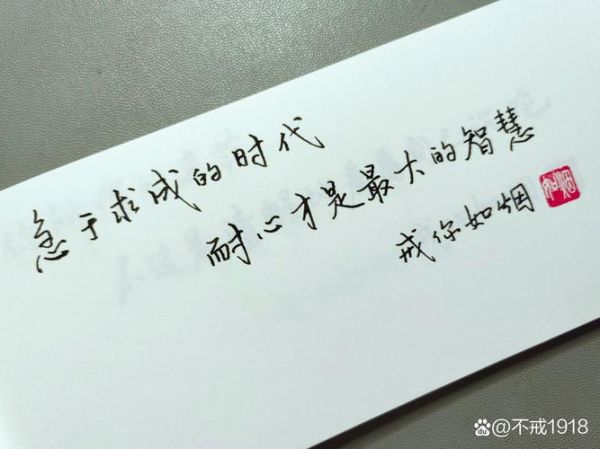 急于求成的时代
耐心才是最大的智慧
戒你如烟
如烟
@不戒1918